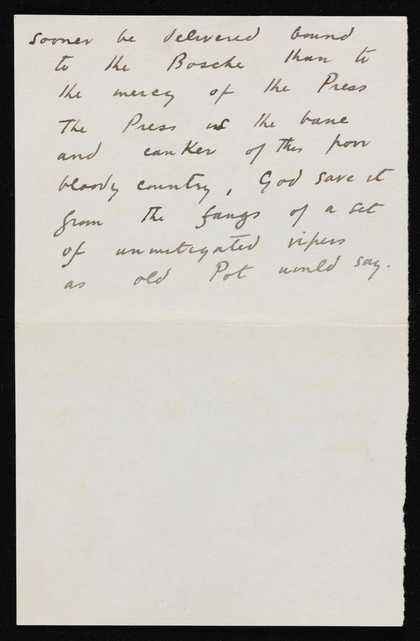 sooner be delivered bound
to the Bosche than to
the mercy of the Press
The Press is the bane
and canker of this poor
bloody country, God save it
from the fangs of a set
of unmitigated vipers
as old Pot would say.